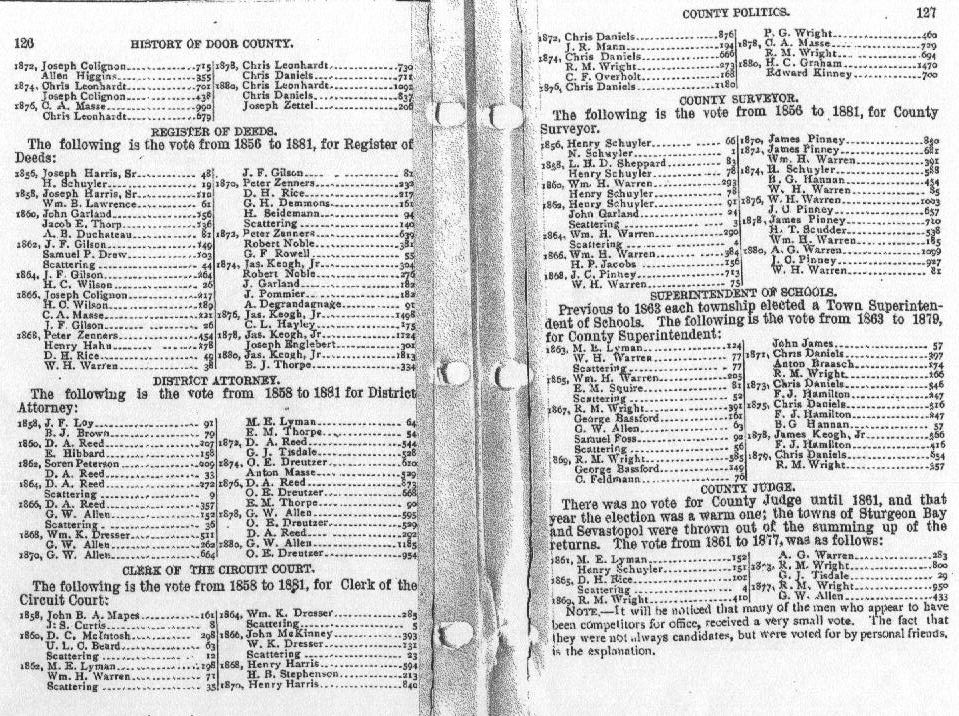 126
HISTORY OF DOOR COUNTY.
1872, Joseph Colignon 715
Allen Higgins 355
1874, Chris Leonhardt 701
Joseph Colignon 438
1876, C. A. Masse 990
Chris Leonhardt 679
1878, Chris Leonhardt 730
Chris Daniels 711
1880, Chris Leonhardt 1092
Chris Daniels 837
Joseph Zettel 206
REGISTER OF DEEDS.
The following is the vote from 1856 to 1881, for Register of
Deeds:
1856, Joseph Harris, Sr 48
H. Schuyler 19
1858, Joseph Harris, Sr 110
Wm. B. Lawrence 61
1860, John Garland 256
Jacob E. Thorp 136
A. B. Duchateau 82
1862, J. F. Gilson 149
Samuel P. Drew 103
Scattering 44
1864, J. F. Gilson 264
H. C. Wilson 26
1866, Joseph Colignon 217
H. C. Wilson 189
C. A. Masse 221
J. F. Gilson 26
1868, Peter Zenners 454
Henry Hahn 278
D. H. Rice 49
W. H. Warren 38
J. F. Gilson 81
1870, Peter Zenners 232
D. H. Rice 217
G. H. Demmons 161
H. Seidemann 94
Scattering 140
1872, Peter Zenners 639
Robert Noble 381
G. F Rowell 55
1874, Jas. Keogh, Jr 304
Robert Noble 276
J. Garland 182
J. Pommier 182
A. Degrandagnage 91
1876, Jas. Keogh, Jr 1498
C. L. Hayley 175
1878, Jas. Keogh, Jr 1124
Joseph Englebert 302
1880, Jas. Keogh, Jr 1813
B. J. Thorpe 334
DISTRICT ATTORNEY.
The following is the vote from 1858 to 1881 for District
Attorney:
1858, J. F. Loy 91
B. J. Brown 79
1860, D. A. Reed 207
E. Hibbard 158
1862, Soren Peterson 209
D. A. Reed 33
1864, D. A. Reed 272
Scattering 9
1866, D. A. Reed 357
G. W. Allen 152
Scattering 36
1868, Wm. K. Dresser 511
G. W. Allen 262
1870, G. W. Allen 664
M. E. Lyman 64
E. M. Thorpe 54
1872, D. A. Reed 544
G. J. Tisdale 528
1874, O. E. Dreutzer 610
Anton Masse 529
1876, D. A. Reed 873
O. E. Dreutzer 668
E. M. Thorpe 90
1878, G. W. Allen 595
O. E. Dreutzer 529
D. A. Reed 292
1880, G. W. Allen 1185
O. E. Dreutzer 954
CLERK OF THE CIRCUIT COURT.
The following is the vote from 1858 to 1881, for Clerk of the
Circuit Court:
1858, John B. A. Mapes 161
J. S. Curtis 8
1860, D. C. McIntosh 298
U. L. C. Beard 63
Scattering 12
1862, M. E. Lyman 198
Wm. H. Warren 71
Scattering 35
1864, Wm. K. Dresser 285
Scattering 5
1866, John McKinney 393
W. K. Dresser 131
Scattering 23
1868, Henry Harris 594
H. B. Stephenson 213
1870, Henry Harris 840
COUNTY POLITICS.
127
1872, Chris Daniels 876
J. R. Mann 194
1874, Chris Daniels 666
R. M. Wright 273
C. F. Overholt 168
1876, Chris Daniels 1180
P. G. Wright 460
1878, C. A. Masse 729
R. M. Wright 694
1880, H. C. Graham 1470
Edward Kinney 700
COUNTY SURVEYOR.
The following is the vote from 1856 to 1881, for County
Surveyor.
1856, Henry Schuyler 66
N. Schuyler 1
1858, L. H. D. Sheppard 83
Henry Schuyler 78
1860, Wm. H. Warren 293
Henry Schuyler 78
1862, Henry Schuyler 91
John Garland 24
Scattering 3
1864, Wm. H. Warren 290
Scattering 4
1866, Wm. H. Warren 384
H. P. Jacobs 156
1868, J. C. Pinney 713
W. H. Warren 75
1870, James Pinney 830
1872, James Pinney 681
Wm. H. Warren 391
1874, H. Schuyler 588
B. G. Hannan 454
W. H. Warren 85
1876, W. H. Warren 1003
J. C Pinney 657
1878, James Pinney 710
H. T. Scudder 538
Wm. H. Warren 185
1880, A. G. Warren 1099
J. C. Pinney 927
W. H. Warren 81
SUPERINTENDENT OF SCHOOLS.
Previous to 1863 each township elected a Town Superinten-
dent of Schools. The following is the vote from 1863 to 1879,
for County Superintendent:
1863, M. E. Lyman 124
W. H. Warren 77
Scattering 77
1865, Wm. H. Warren 205
E. M. Squire 81
Scattering 52
1867, R. M. Wright 391
George Bassford 161
G. W. Allen 63
Samuel Foss 92
Scattering 56
1869, R. M. Wright 385
George Bassford 149
C. Feldmann 76
John James 57
1871, Chris Daniels 397
Anton Braasch 174
R. M. Wright 166
1873, Chris Daniels 546
F. J. Hamilton 247
1875, Chris Daniels 516
F. J. Hamilton 247
B. G Hannan 57
1878, James Keogh, Jr 566
F. J. Hamilton 416
1879, Chris Daniels 654
R. M. Wright 357
COUNTY JUDGE.
There was no vote for County Judge until 1861, and that
year the election was a warm one; the towns of Sturgeon Bay
and Sevastopol were thrown out of the summing up of the
returns. The vote from 1861 to 1877, was as follows:
1861, M. E. Lyman 152
Henry Schuyler 151
1865, D. H. Rice 102
Scattering 4
1869, R. M. Wright 410
A. G. Warren 283
1873, R. M. Wright 800
G. J. Tisdale 29
1877, R. M. Wright 950
G. W. Allen 433
NOTE.—It will be noticed that many of the men who appear to have
been competitors for office, received a very small vote. The fact that
they were not always candidates, but were voted for by personal friends,
is the explanation.